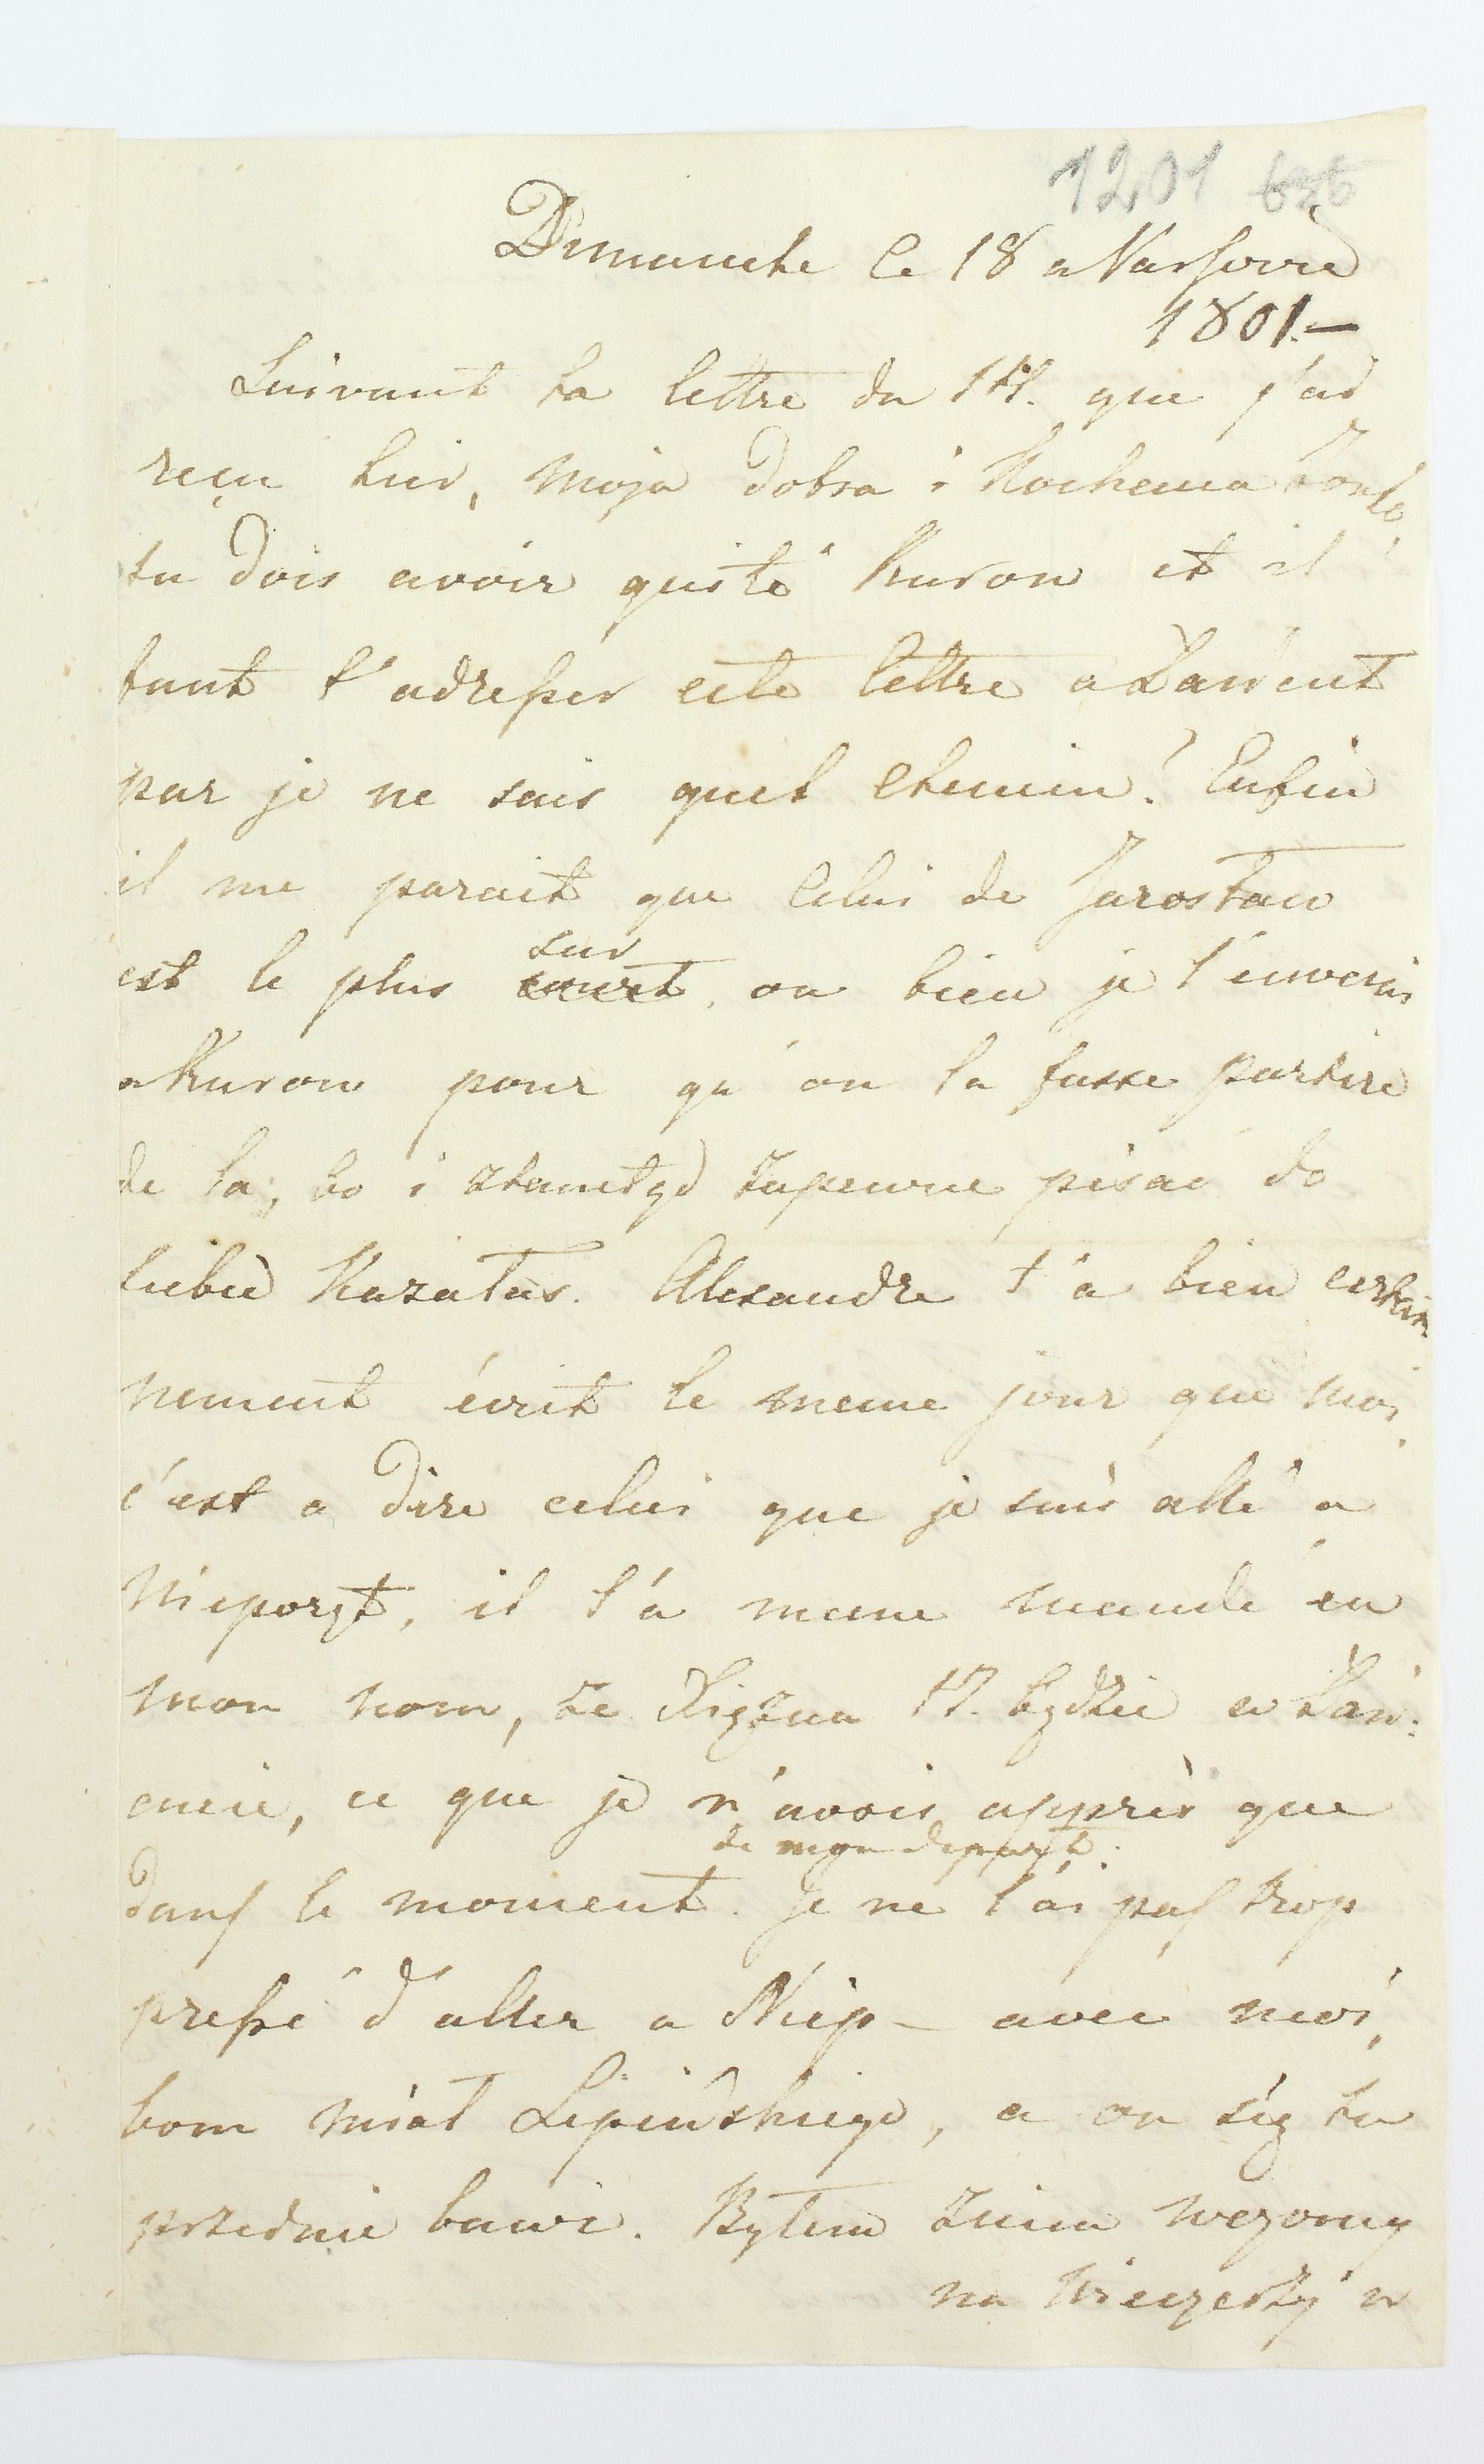 1201
Dimanche le 18 a Varsovie
1801.—
Suivant ta lettre du 14. que j'ai
reçu hier, moja dobra i Kochana Żonko,
tu dois avoir quité Kurow et il
faut t'adresser cete lettre a Łańcut
par je ne sais quel chemin! Enfin
il me parait que celui de Jarosław
est le plus court sur, ou bien je l'enverais
a Kurow pour qu'on la fasse partire
de la; bo i ztamtąd zapewne pisać do
siebie Kazałaś. Alexandre t'a bien certain
nement écrit le meme jour que moi,
c'est a dire celui que je suis allé a
Nieporęt, il t'a meme mandé en
mon nom, że Xiężna M. będzie w Łań:
cucie, ce que je n'avois apprès que
dans le moment de mon depart. Je ne l'ai pas trop
pressé d'aller a Niep— avec moi,
bom miał Lipińskiego, a on się tu
przednie bawi. Byłem z nim wczoray
na Wieczerzy w